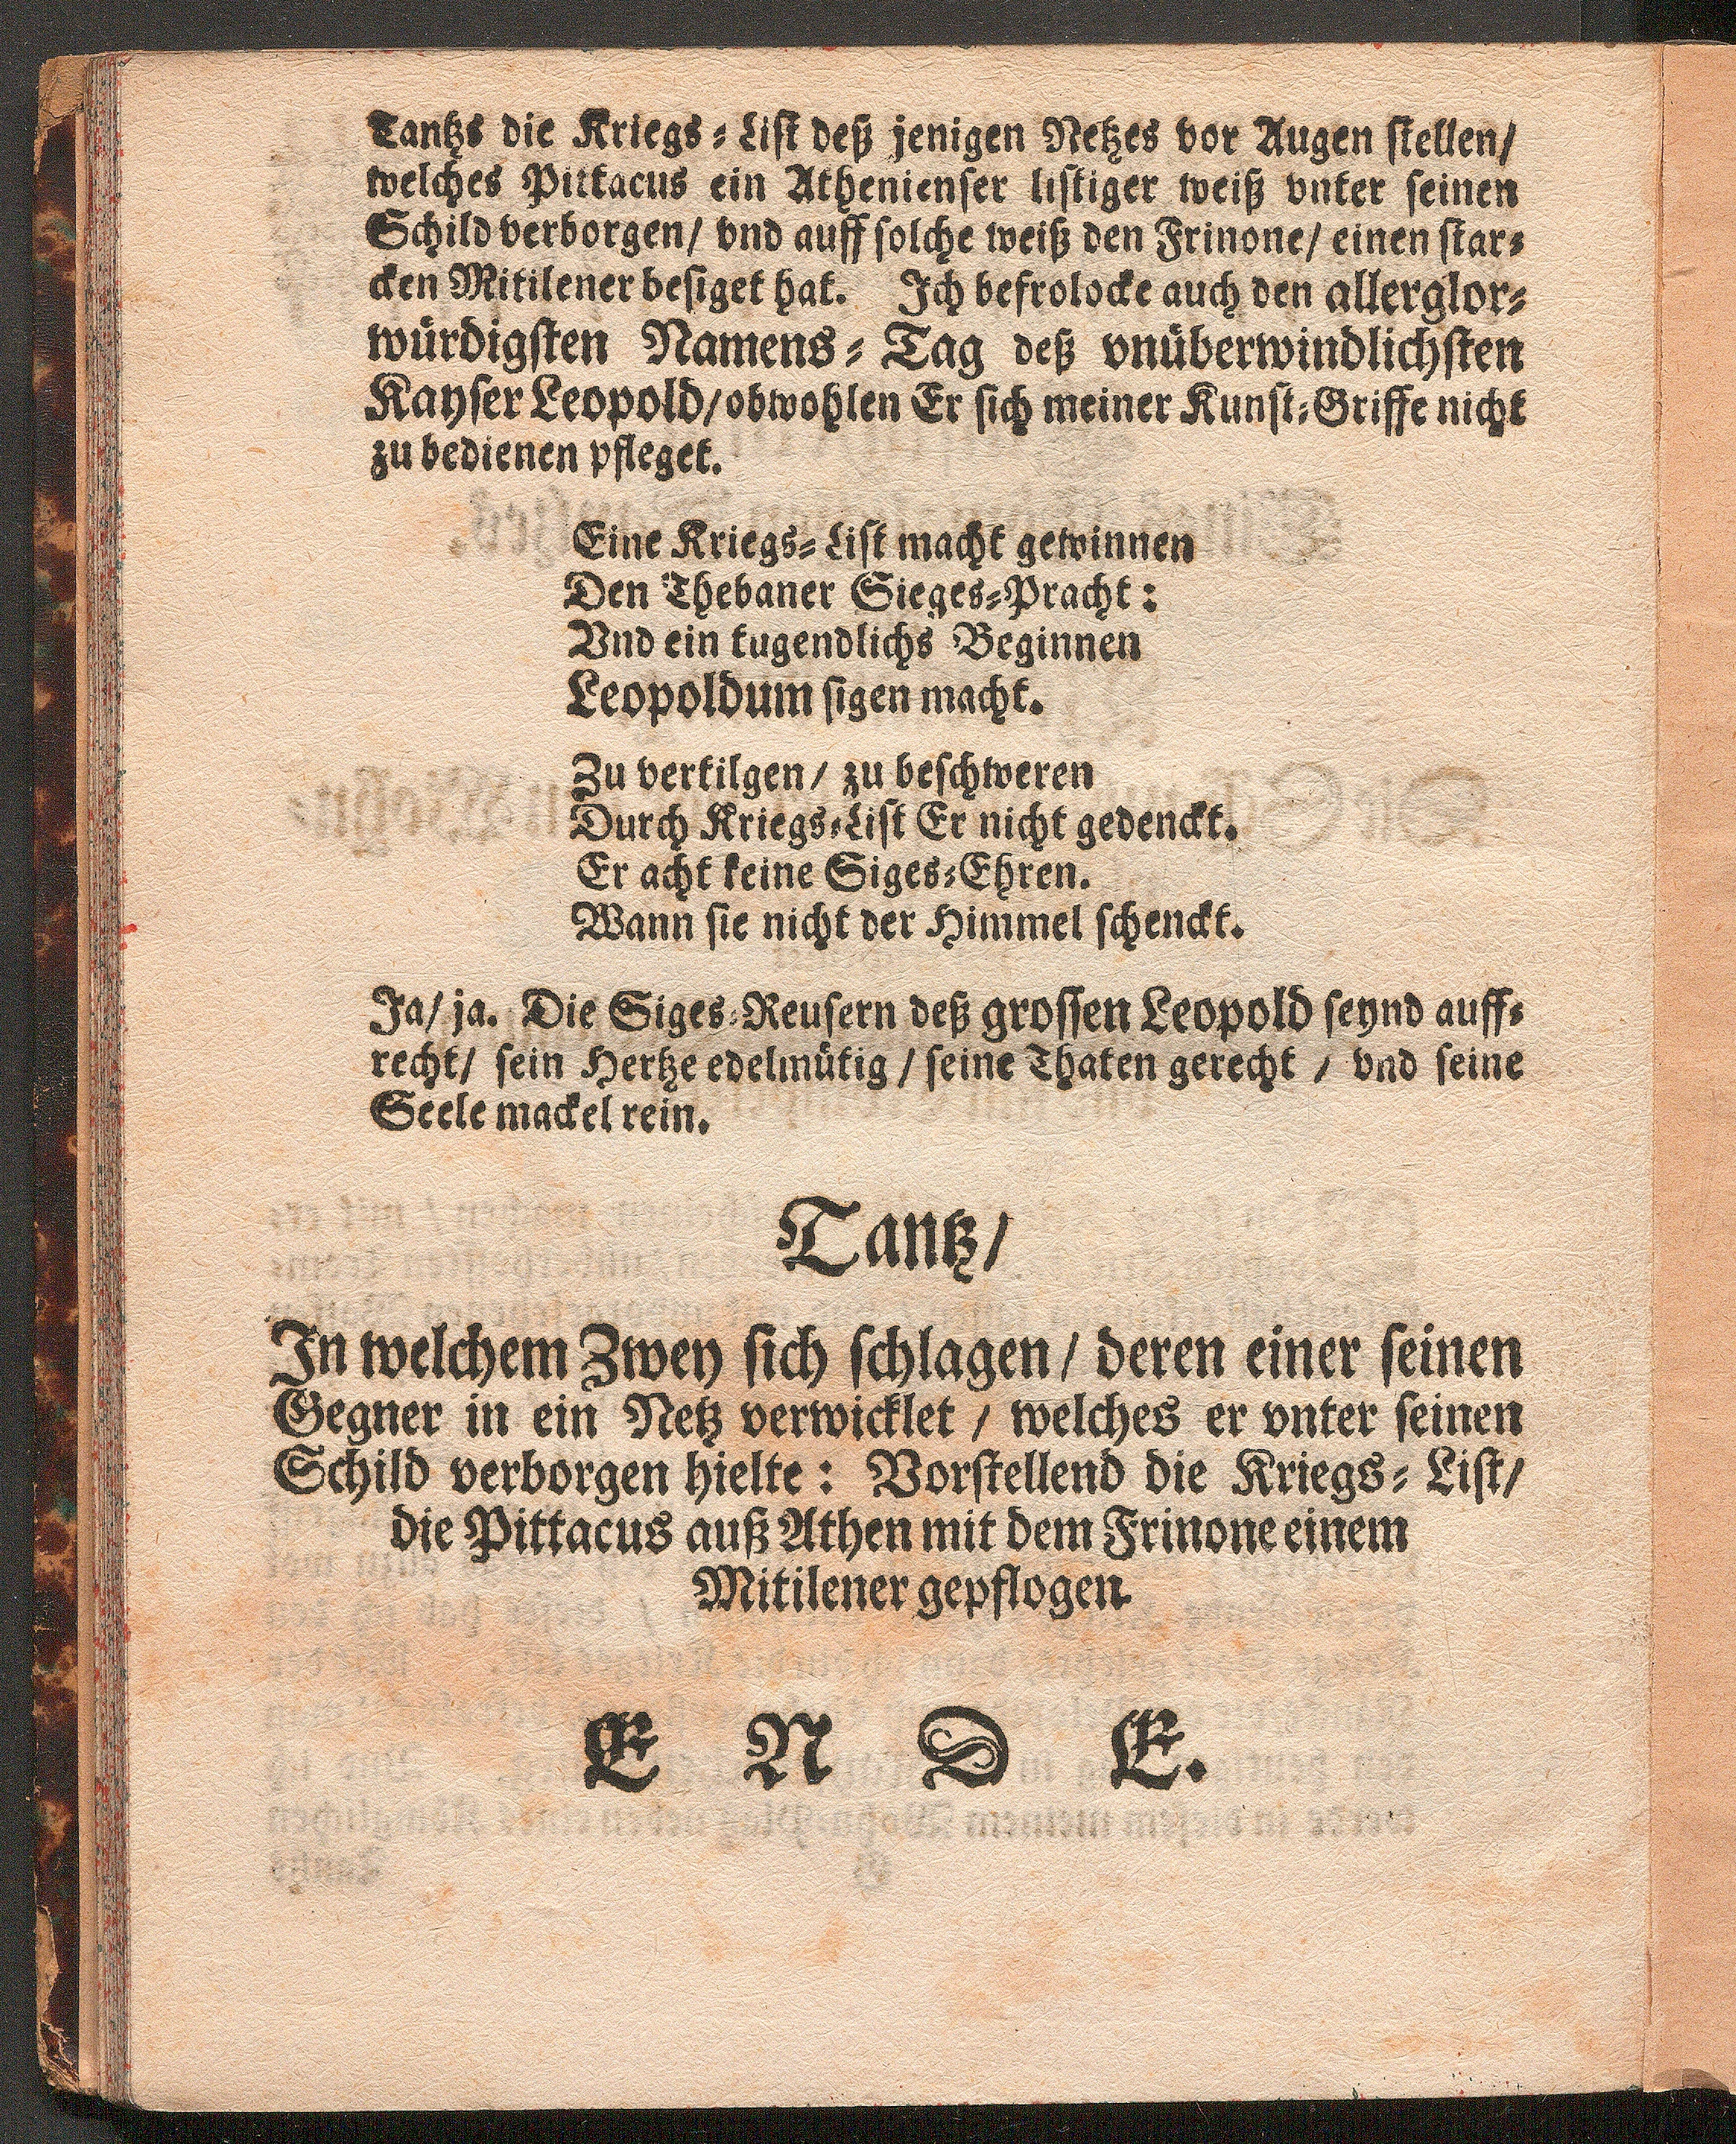 Tantzs die Kriegs-List deß jenigen Netzes vor Augen stellen/
welches Pittacus ein Athenienser listiger weiß vnter seinen
Schild verborgen/ vnd auff solche weiß den Frinone/ einen star-
cken Mitilener besiget hat. Ich befrolocke auch den allerglor-
würdigsten Namens-Tag deß vnüberwindlichsten
Kayser Leopold/ obwohlen Er sich meiner Kunst-Griffe nicht
zu bedienen pfleget.
Eine Kriegs-List macht gewinnen
Den Thebaner Sieges-Pracht:
Vnd ein tugendlichs Beginnen
Leopoldum sigen macht.
Zu vertilgen/ zu beschweren
Durch Kriegs-List Er nicht gedenckt.
Er acht keine Siges-Ehren.
Wann sie nicht der Himmel schenckt.
Ja/ ja. Die Siges-Reusern deß grossen Leopold seynd auff-
recht/ sein Hertze edelmütig/ seine Thaten gerecht/ vnd seine
Seele mackel rein.
Tantz/
In welchem Zwey sich schlagen/ deren einer seinen
Gegner in ein Netz verwicklet/ welches er vnter seinen
Schild verborgen hielte: Vorstellend die Kriegs-List/
die Pittacus auß Athen mit dem Frinone einem
Mitilener gepflogen.
E N D E.